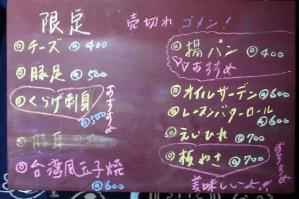 限定
売切れ ゴメン!
◎チーズ @400
◎豚足 @500
◎くらげ刺身 @500
おすすめ
◎台湾風玉子焼 @600
◎揚パン @400
おすすめ
◎オイルサーデン @600
◎レーズンバターロール @600
◎えいひれ @700
◎板わさ @700
おすすめ
美味しいよ!!